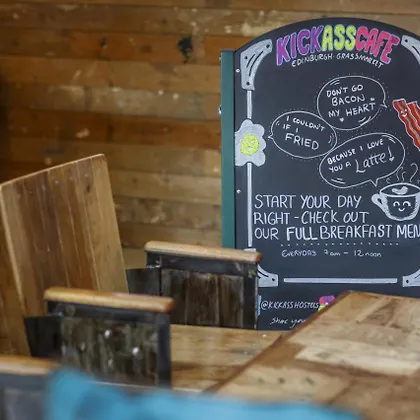 KICKASSCAFE
EDINBURGH · GRASSMARKET
DON'T GO
BACON
MY HEART
I COULDN'T
IF I
FRIED
BECAUSE I LOVE
YOU A Latte!
START YOUR DAY
RIGHT - CHECK OUT
OUR FULL BREAKFAST MEN
EVERYDAY 7am - 12 noon
@KICKASSHOSTELS